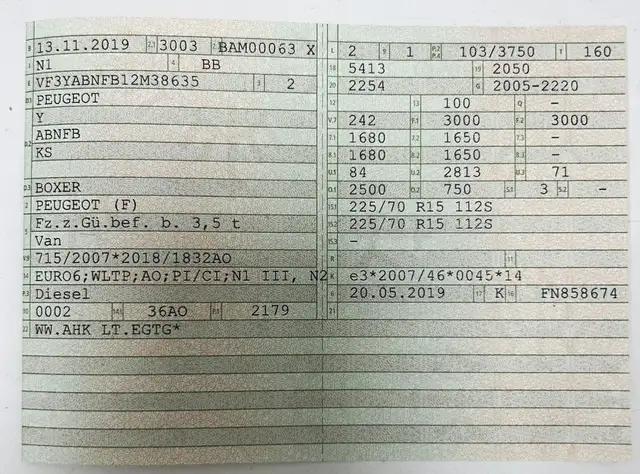 B 13.11.2019 2.1 3003 2.2 BAM00063 X
J N1 4 BB
E VF3YABNFB12M38635 3 2
D.1 PEUGEOT
Y
D.2 ABNFB
KS
D.3 BOXER
2 PEUGEOT (F)
5 Fz.z.Gü.bef. b. 3,5 t
Van
V.9 715/2007*2018/1832AO
14 EURO6;WLTP;AO;PI/CI;N1 III, N2
P.3 Diesel
10 0002 14.1 36AO P.1 2179
22 WW.AHK LT.EGTG*
L 2 9 1 P.2 P.4 103/3750 T 160
18 5413 19 2050
20 2254 G 2005-2220
12 13 100 Q -
V.7 242 F.1 3000 F.2 3000
7.1 1680 7.2 1650 7.3 -
8.1 1680 8.2 1650 8.3 -
U.1 84 U.2 2813 U.3 71
O.1 2500 O.2 750 S.1 3 S.2 -
15.1 225/70 R15 112S
15.2 225/70 R15 112S
15.3 -
R 11
K e3*2007/46*0045*14
6 20.05.2019 17 K 16 FN858674
21